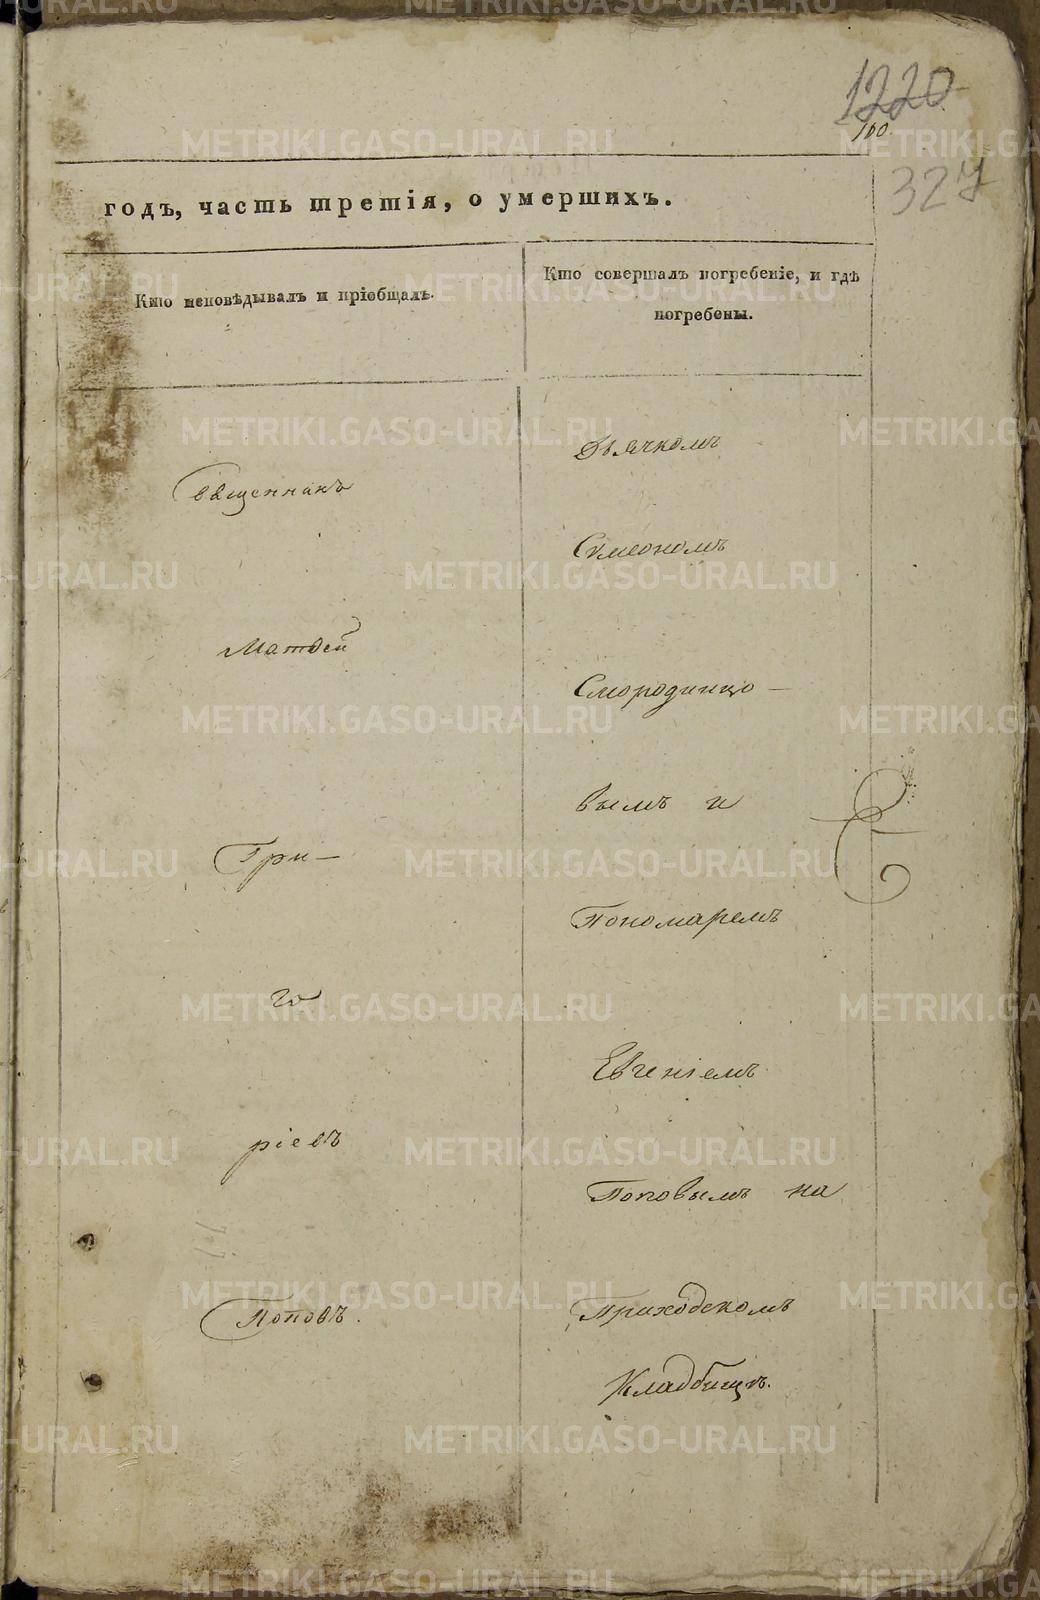 1220
160.
327
годъ, часть третія, о умершихъ.
Кто исповѣдывалъ и пріобщалъ.
Кто совершалъ погребеніе, и гдѣ
погребены.
Священникъ
Матвей
Гри-
го
ріевъ
Поповъ.
Дьячкомъ
Сумеономъ
Смородинцо-
вымъ и
Пономаремъ
Евгеніемъ
Поповымъ на
Приходскомъ
Кладбищѣ.
METRIKI.GASO-URAL.RU